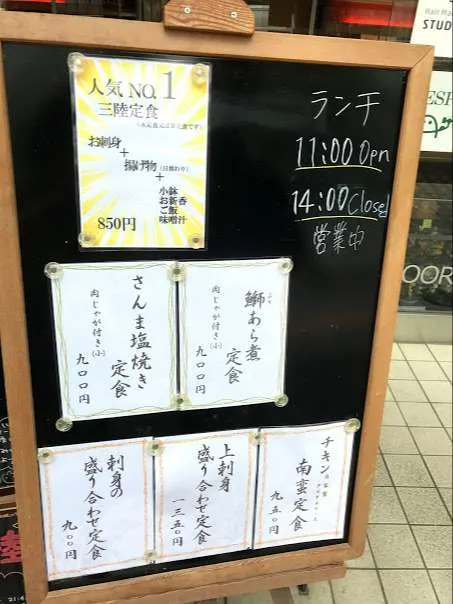 人気 NO.1
三陸定食
お刺身
+
揚げ物(日替わり)
+
小鉢
お新香
ご飯
味噌汁
850円
ランチ
11:00 Open
14:00 Closed
営業中
ぶり
鰤あら煮
定食
肉じゃが付き(小)
九〇〇円
さんま塩焼き
定食
肉じゃが付き(小)
九〇〇円
チキン
南蛮定食
九五〇円
上刺身
盛り合わせ定食
一三五〇円
刺身の
盛り合わせ定食
九〇〇円
STUD
ESP
OOR